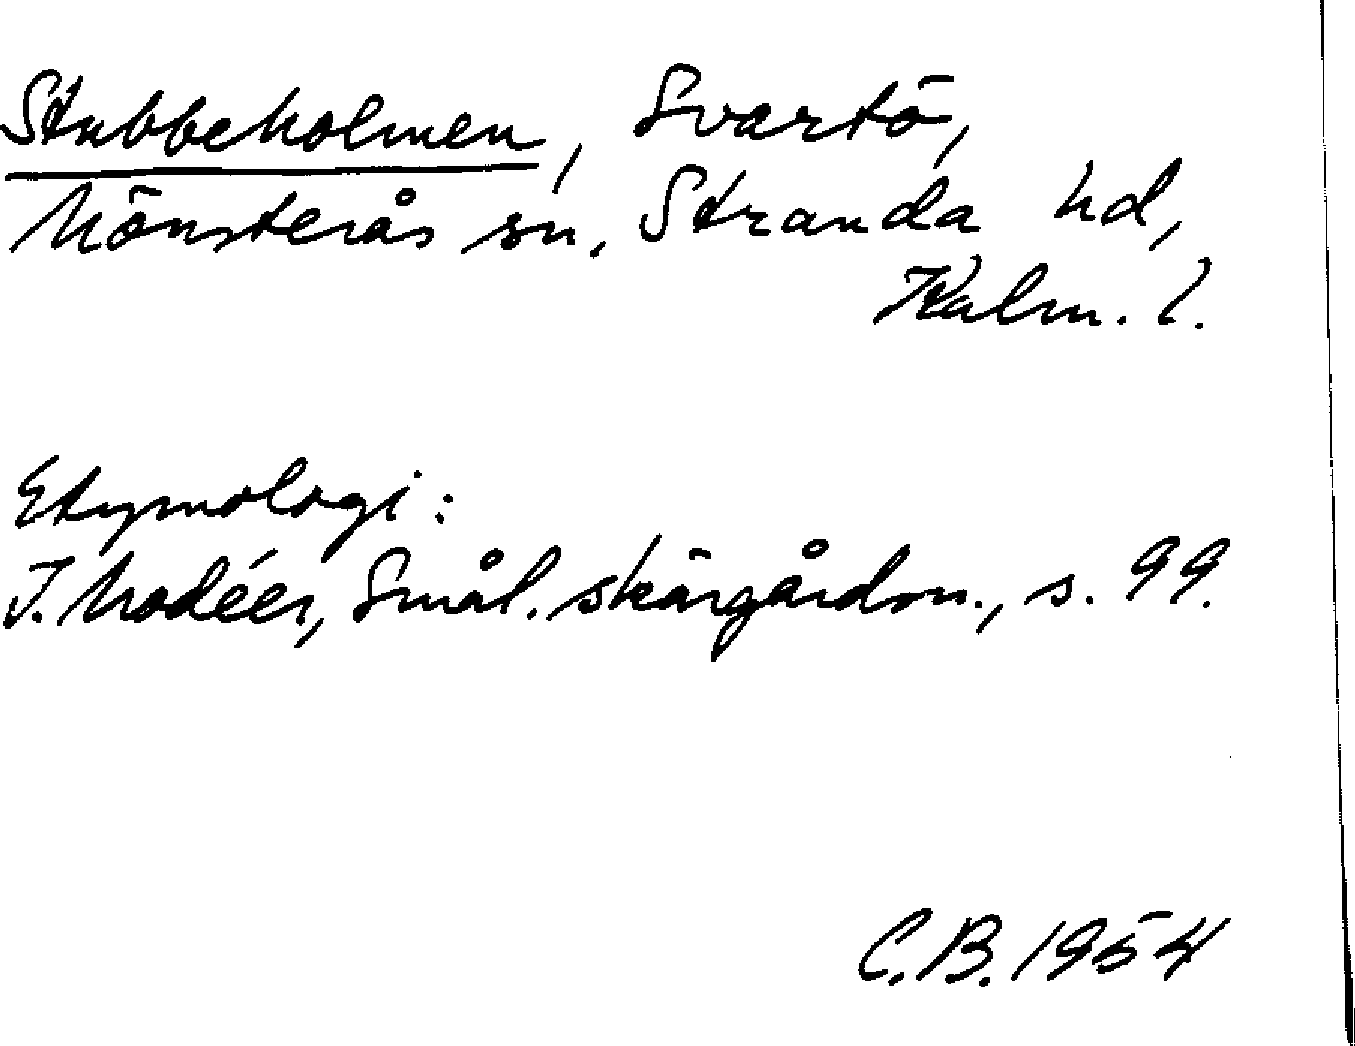 Stubbeholmen, Svartö,
Mönsterås sn, Stranda hd,
Kalm. l.
Etymologi:
I. Modéer, Smål. skärgårdsn., s. 99.
C.B. 1954